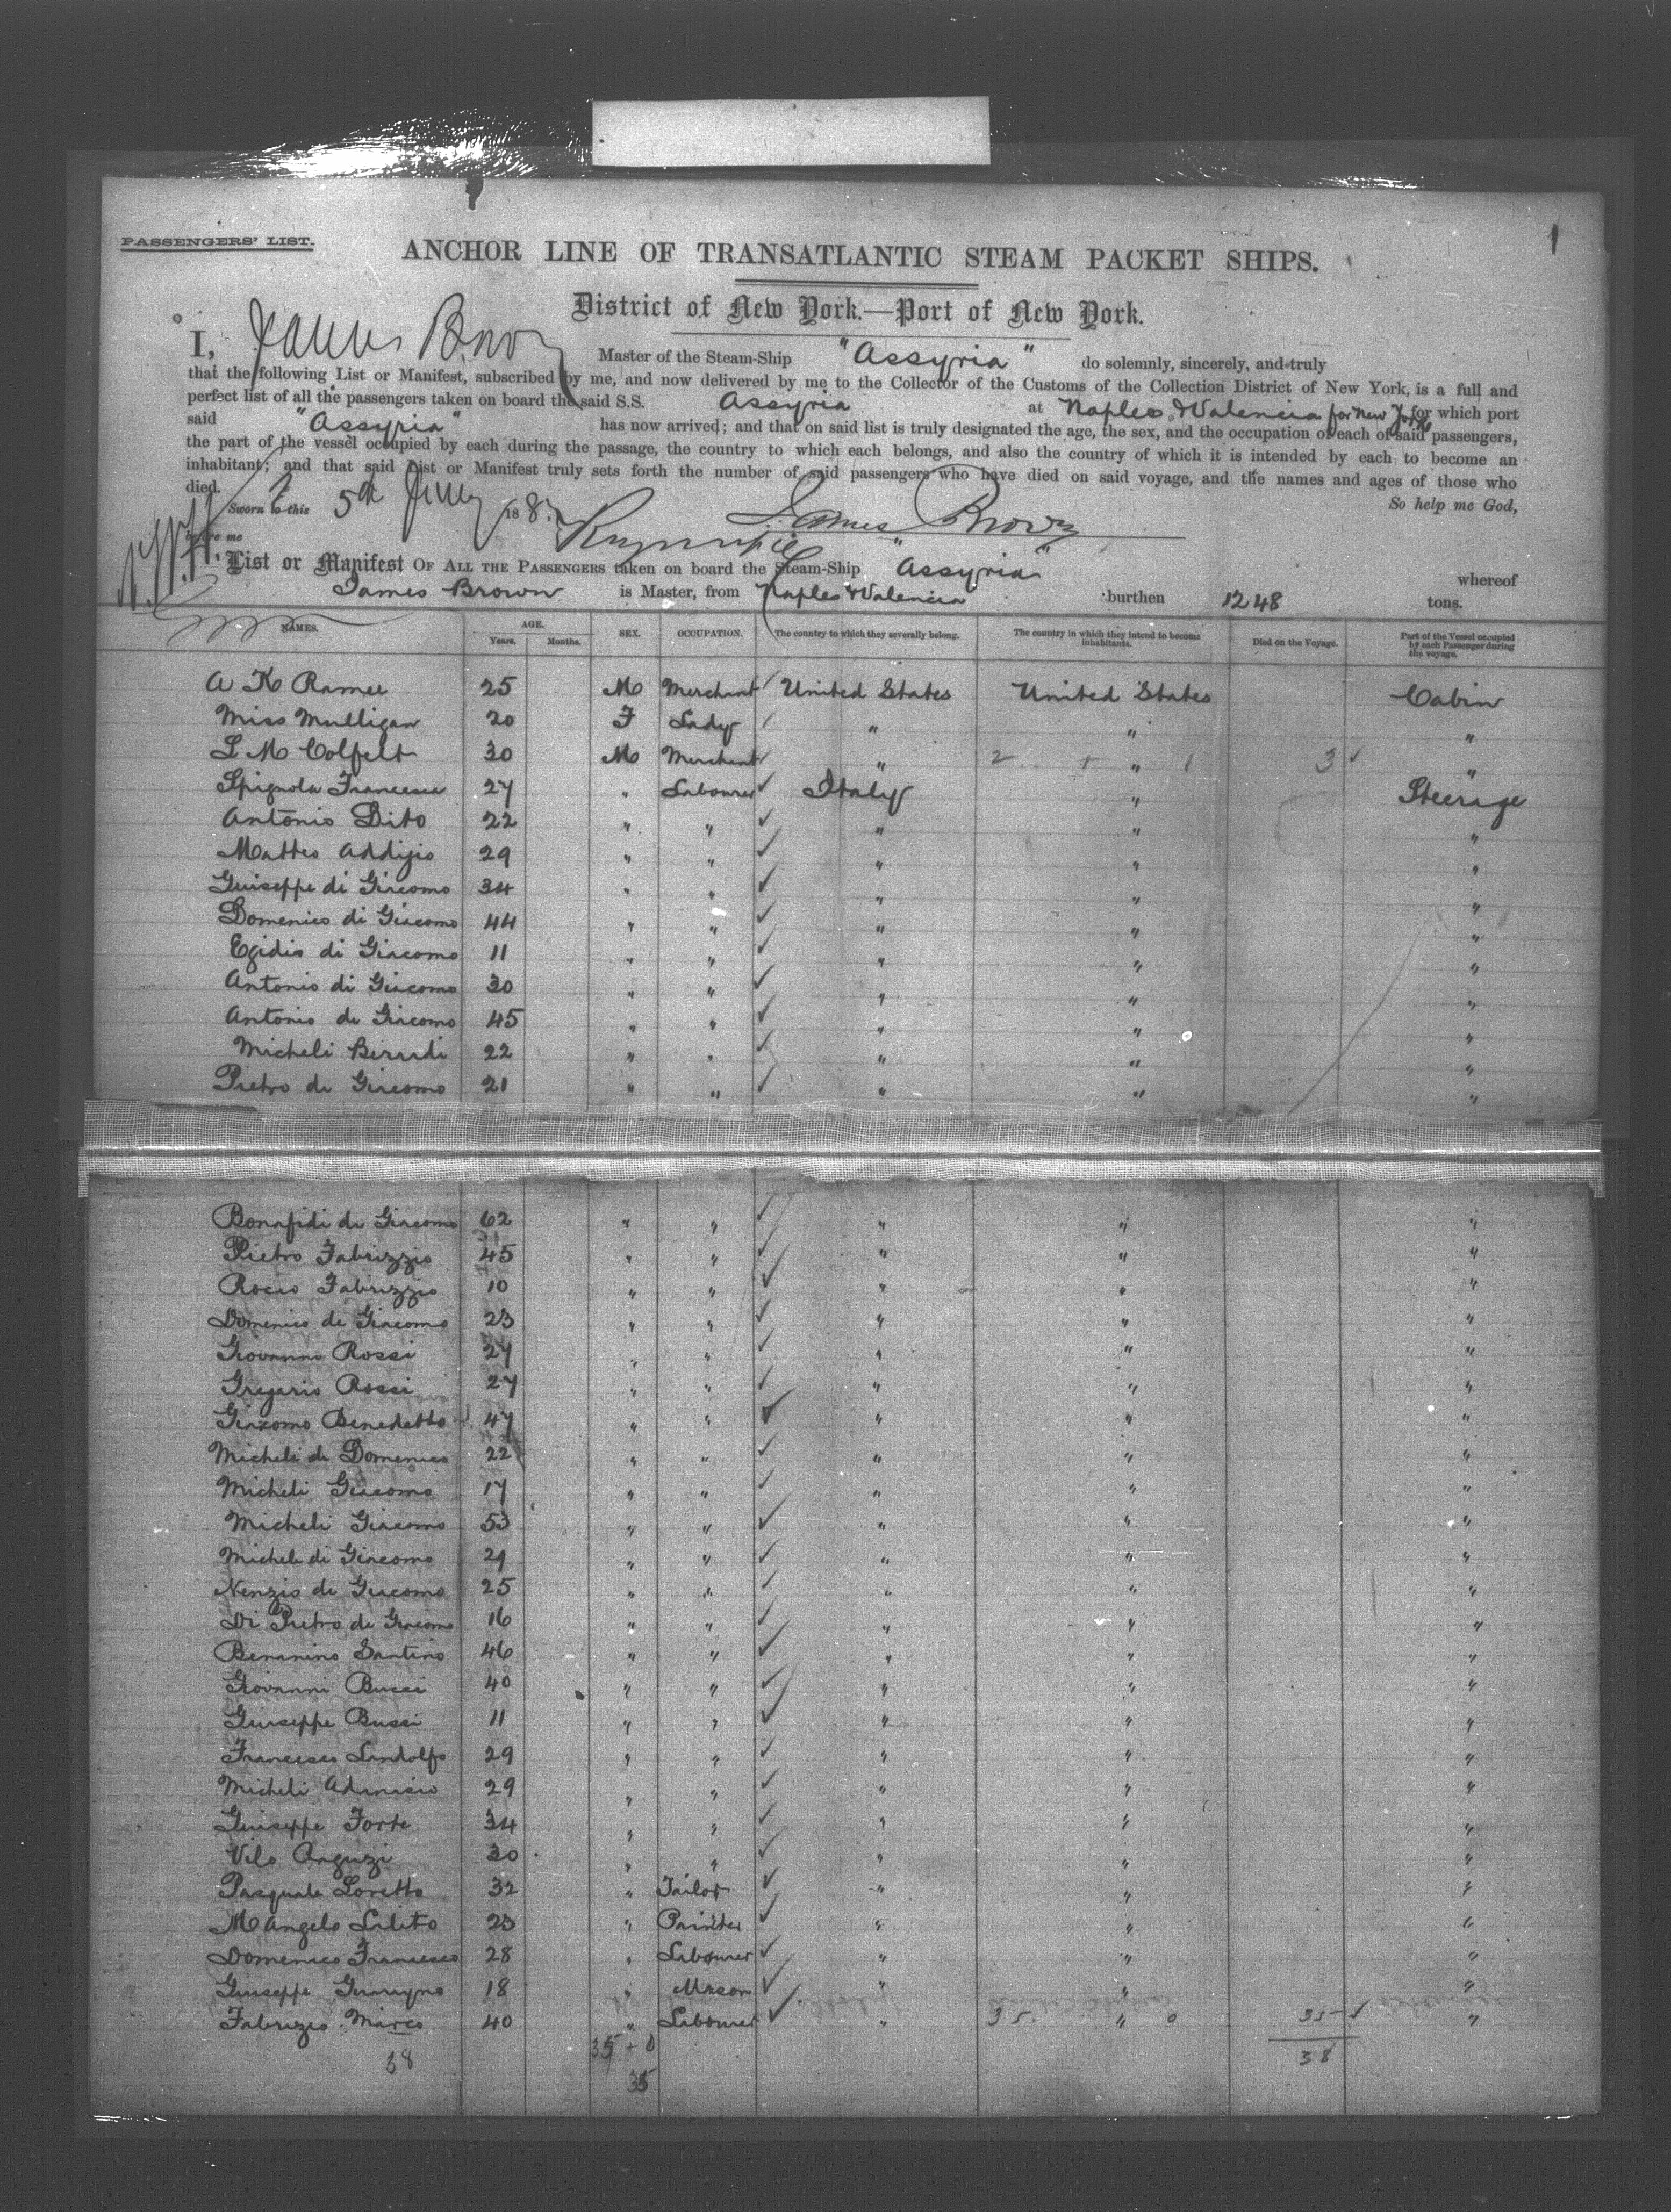 1
PASSENGERS' LIST.
ANCHOR LINE OF TRANSATLANTIC STEAM PACKET SHIPS.
District of New York.—Port of New York.
I, James Brown Master of the Steam-Ship "Assyria" do solemnly, sincerely, and truly
that the following List or Manifest, subscribed by me, and now delivered by me to the Collector of the Customs of the Collection District of New York, is a full and
perfect list of all the passengers taken on board the said S.S. Assyria at Naples & Valencia for New York for which port
said "Assyria" has now arrived; and that on said list is truly designated the age, the sex, and the occupation of each of said passengers,
the part of the vessel occupied by each during the passage, the country to which each belongs, and also the country of which it is intended by each to become an
inhabitant; and that said List or Manifest truly sets forth the number of said passengers who have died on said voyage, and the names and ages of those who
died. So help me God,
Sworn to this 5th 188 James Brown
before me
List or Manifest OF ALL THE PASSENGERS taken on board the Steam-Ship "Assyria" whereof
James Brown is Master, from Naples & Valencia burthen 1248 tons.
NAMES. AGE. Years. Months. SEX. OCCUPATION. The country to which they severally belong. The country in which they intend to become inhabitants. Died on the Voyage. Part of the Vessel occupied by each Passenger during the voyage.
A K Ramee 25 M Merchant United States United States Cabin
Miss Mulligan 20 F Lady " " "
L M Colfelt 30 M Merchant " 2 + " 1 3 "
Spignola Francesco 27 " Labourer Italy " Steerage
Antonio Dito 22 " " " " "
Matteo Addijio 29 " " " " "
Guiseppe di Giacomo 34 " " " " "
Domenico di Giacomo 44 " " " " "
Egidio di Giacomo 11 " " " " "
Antonio di Giacomo 30 " " " " "
Antonio di Giacomo 45 " " " " "
Micheli Berardi 22 " " " " "
Pietro di Giacomo 21 " " " " "
Bonafidi di Giacomo 62 " " " " "
Pietro Fabrizzio 45 " " " " "
Rocco Fabrizzio 10 " " " " "
Domenico di Giacomo 23 " " " " "
Giovanni Rossi 27 " " " " "
Gregorio Rossi 27 " " " " "
Giacomo Benedetto 47 " " " " "
Micheli di Domenico 22 " " " " "
Micheli Giacomo 17 " " " " "
Micheli Giacomo 53 " " " " "
Micheli di Giacomo 29 " " " " "
Nenzio di Giacomo 25 " " " " "
Di Pietro di Giacomo 16 " " " " "
Benanino Santino 46 " " " " "
Giovanni Bucci 40 " " " " "
Giuseppe Bucci 11 " " " " "
Francesco Landolfo 29 " " " " "
Micheli Adamasio 29 " " " " "
Guiseppe Forte 34 " " " " "
Vilo Arguzi 30 " " " " "
Pasquale Loretto 32 " Tailor " " "
M Angelo Lilito 23 " Painter " " "
Domenico Francesco 28 " Labourer " " "
Giuseppe 18 " Mason " " "
Fabrizio Marco 40 " Labourer " 35 " 0 35 "
38 35 + 0 38
35